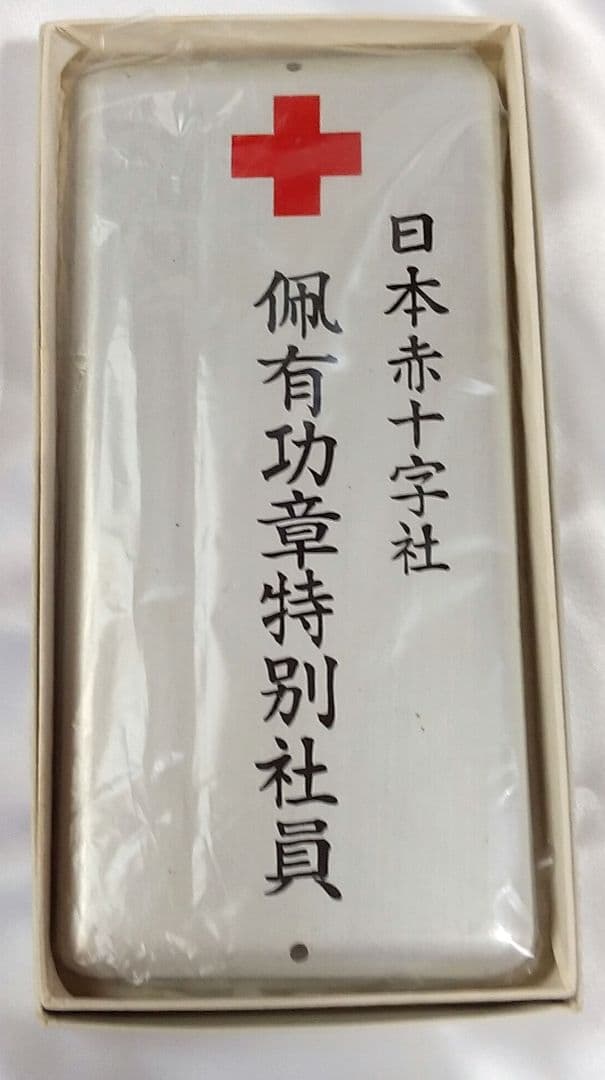 日本赤十字社
佩有功章特別社員